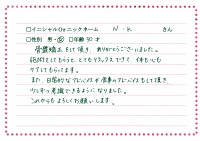 □イニシャルorニックネーム　N・K　さん
□性別　男・女　□年齢 30 才
骨盤矯正をして頂き、ありがとうございました。
施術をしてもらうと、とてもリラックスできて、体も心も
ケアしてもらってます。
また、日常的なアドバイスや食事のアドバイスもして頂き、
少しずつ意識できるようになりました。
これからもよろしくお願いします。